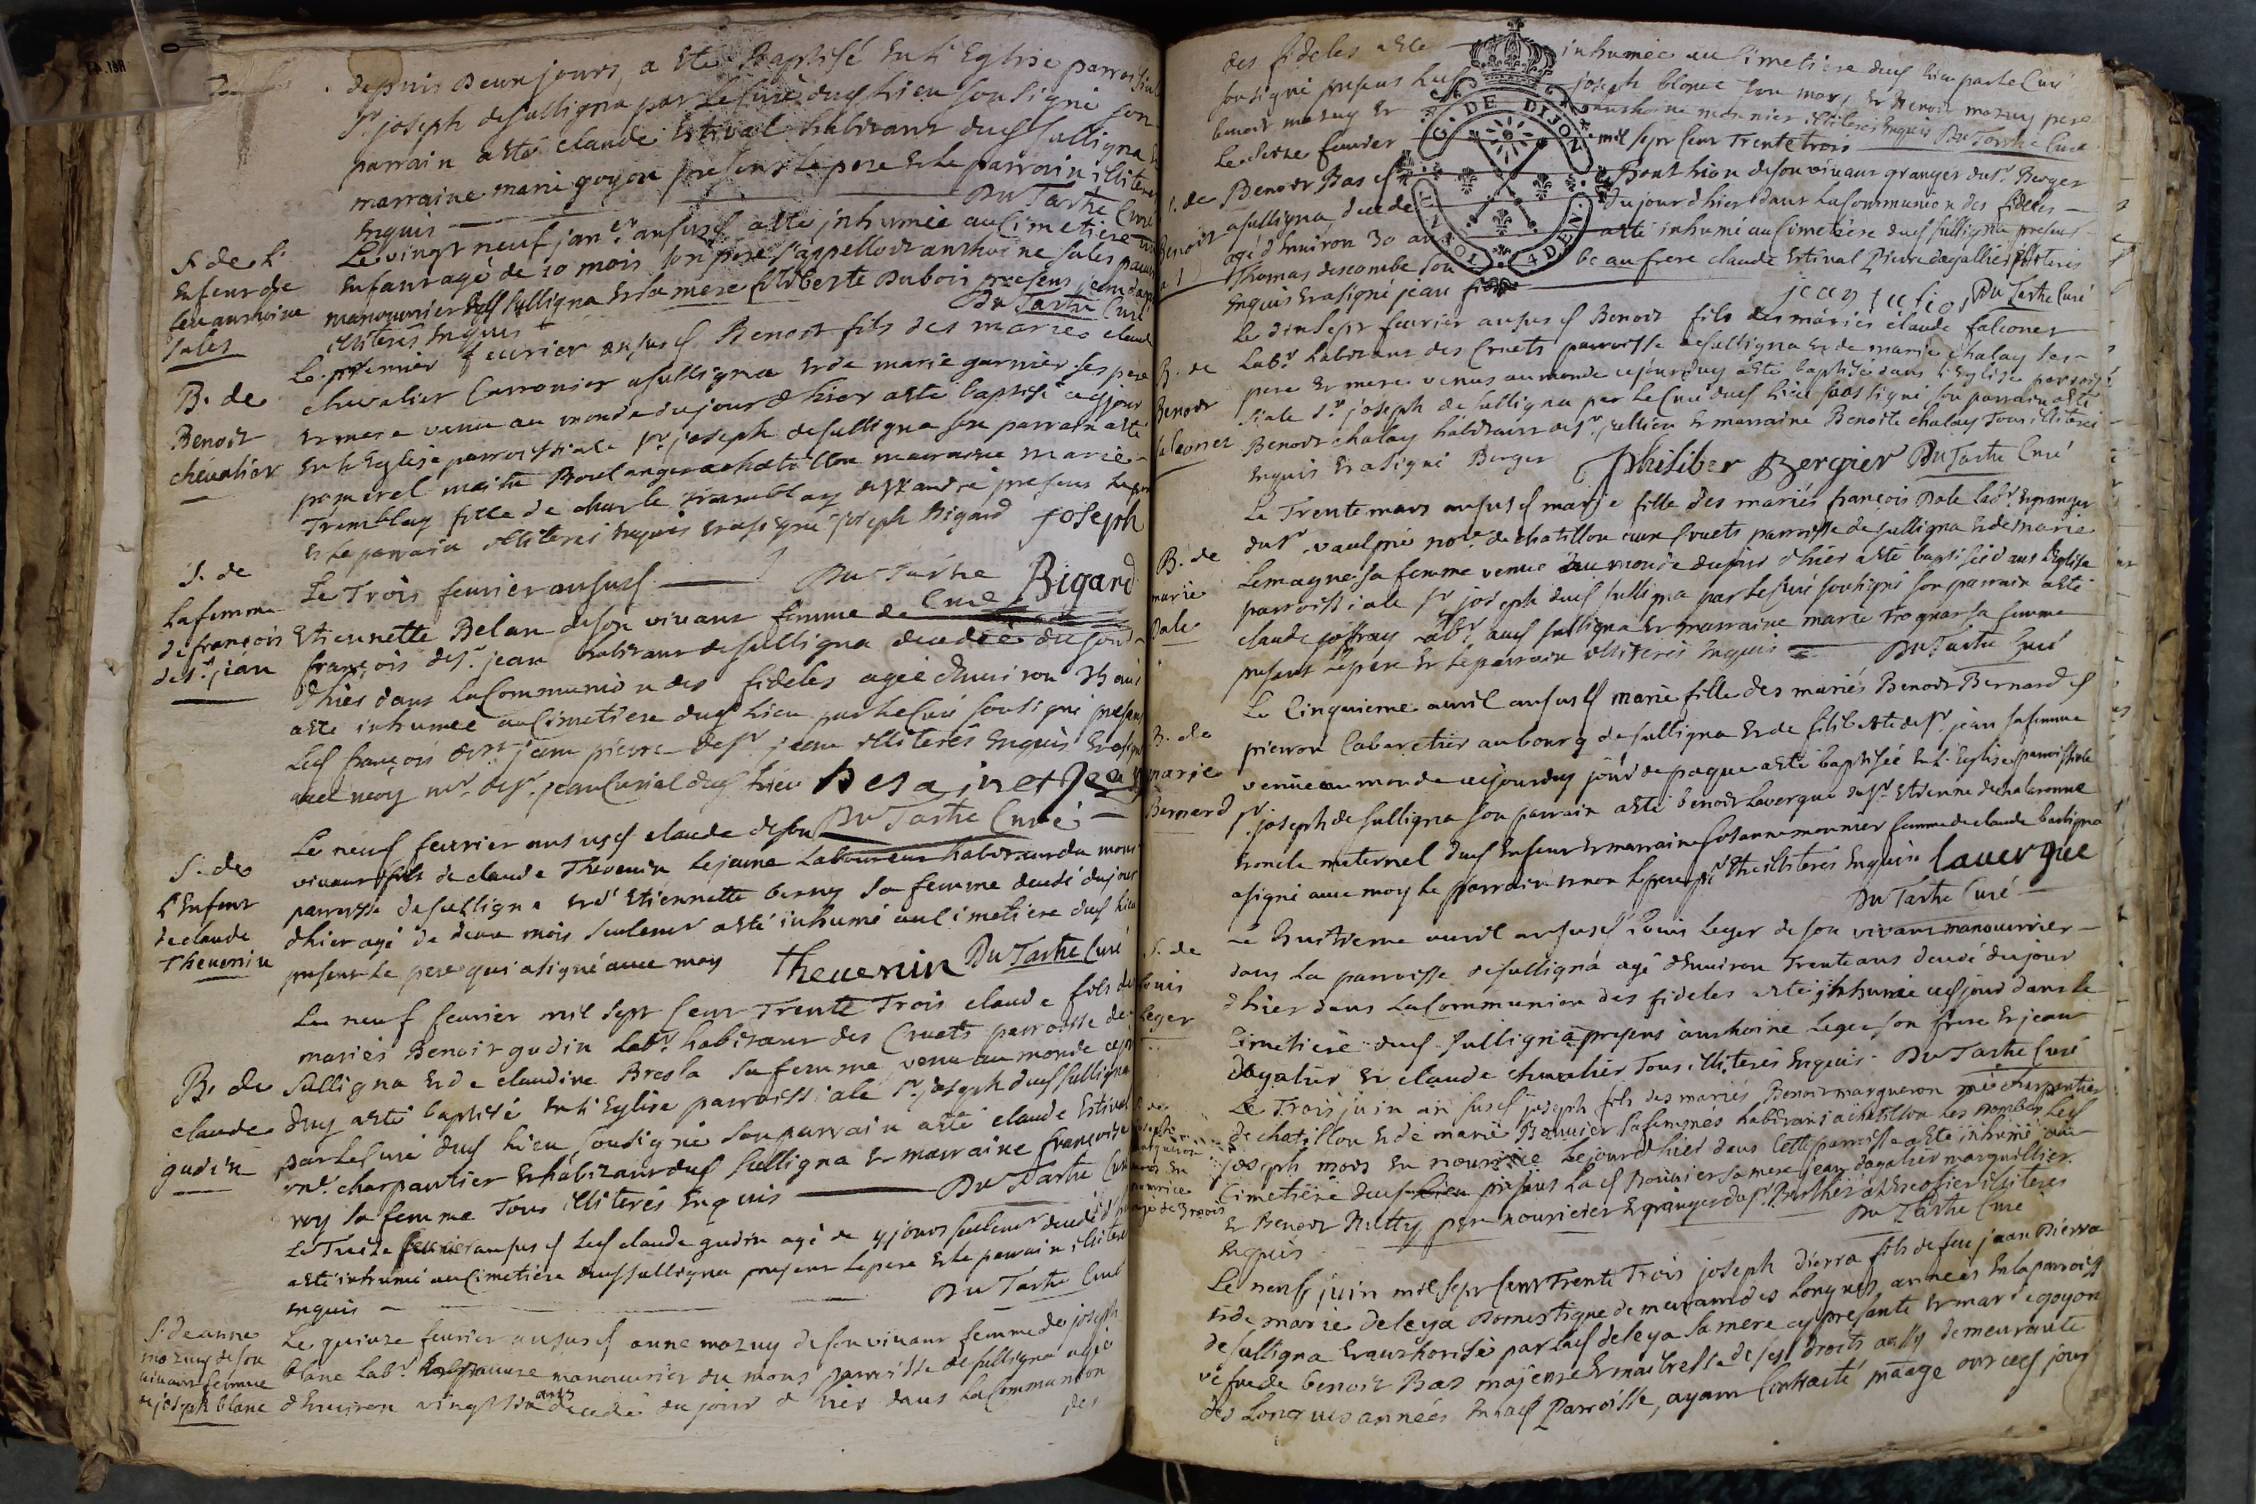 depuis deux jours, a esté Baptisé en l'Eglise parroissial
St joseph de sulligna par le Curé dud lieu sousigné son
parrain a esté claude Estival habitant dud sulligna
marraine marie goyon presens le pere et le parrain illiteré
Enquis Du Tartre Curé
S. de l'
Enfent de
feu anthoine
sales
Le vingt neuf janer aususd a esté inhumée au Cimetiere
Enfant agé de 10 mois son pere s'appelloit anthoine sales
manouvrier aud sulligna et sa mere filiberte Dubois presens jean
illiterés Enquis Du Tartre Curé
B. de
Benoit
chevalier
Le premier fevrier aususd Benoit fils des mariés claude
chevalier Carronier a sulligna et de marie garnier ses pere
et mere venu au monde du jour d'hier a esté baptisé cejour
en l'Eglise parroissiale St joseph de sulligna son parrain a esté
maitre Boulanger a chatillon marraine marie
Tremblay fille de charle Tremblay presens le pere
et le parrain illiterés enquis et a signé joseph Bigard joseph
Bigard
S. de
la femme
de françois
de St jean
Le Trois fevrier aususd Du Tartre Curé
Etiennette Belan de son vivant femme de
françois de St jean habitant de sulligna decedée du jour
d'hier dans la Communion des fideles agée d'environ 35 ans
a esté inhumée au Cimetiere dud lieu par le Curé sousigné presens
led françois de St jean pierre de St jean illiterés Enquis et a signé
avec moy mr de St jean Curial dud lieu Desainctjean
Du Tartre Curé
S. de
l'Enfent
de claude
Thevenin
Le neuf fevrier aususd claude de son
vivant fils de claude Thevenin le jeune Laboureur habitant du mont
parroisse de sulligna et d'Etiennette berny sa femme decedé du jour
d'hier agé de deux mois seulemt a esté inhumé au Cimetiere dud lieu
presens le pere qui a signé avec moy thevenin Du Tartre Curé
B. de
claude
gudin
Le neuf fevrier mil sept cent Trente Trois claude fils des
mariés Benoit gudin labr habitant des Cruets parroisse de
sulligna et de claudine Bresla sa femme venu au monde ce jour
duy a esté baptisé en l'Eglise parroissiale St joseph dud sulligna
par le Curé dud lieu sousigné son parrain a esté claude Estival
me charpantier et habitant dud sulligna et marraine françoise
roy sa femme Tous illiterés Enquis Du Tartre Curé
Le Treize fevrier aususd led claude gudin agé de 4 jours seulemt decedé
a esté inhumé au Cimetiere dud sulligna presens le pere et le parrain illiterés
enquis Du Tartre Curé
S. d'anne
mazuy de son
vivant femme
de joseph blanc
Le quinze fevrier aususd anne mazuy de son vivant femme de joseph
blanc labr manouvrier du mons parroisse de sulligna agée
d'environ vingt six ans decedée du jour d'hier dans la Communion
des
des fideles a esté inhumée au Cimetiere dud lieu par le Curé
sousigné presens led joseph blanc son mary et Benoit mazuy pere
benoit mazuy et anthoine monnier illiterés Enquis Du Tartre Curé
Le seize fevrier mil sept cent Trente trois
G. DE DIJON
4 DEN.
S. de
Benoit
Benoit Bas de son vivant granger du Sr Berger
a sulligna decedé du jour d'hier dans la Communion des fideles
agé d'environ 30 ans a esté inhumé au Cimetiere dud sulligna presens
Thomas descombe son beau frere claude Estival Pierre dagallier illiterés
Enquis et a signé jean Du Tartre Curé
B. de
Benoit
falconet
Le dix sept fevrier aususd Benoit fils des mariés claude falconet
Labr habitant des Cruets parroisse de sulligna et de marie chalay ses
pere et mere venus au monde cejourduy a esté baptisé dans l'Eglise parrois
siale St joseph de sulligna par le Curé dud lieu sousigné son parrain a esté
Benoit chalay habitant de St jullien et marraine Benoite chalay Tous illiterés
Enquis et a signé Berger Philiber Bergier Du Tartre Curé
B. de
marie
Dale
Le Trente mars aususd marie fille des mariés françois Dale labr et granger
du Sr vaulpré nore de chatillon aux Cruets parroisse de sulligna et de marie
Lemagne sa femme venue au monde du jour d'hier a esté baptisée dans l'Eglise
parroissiale St joseph dud sulligna par le Curé sousigné son parrain a esté
claude joffray labr aud sulligna et marraine marie rognar sa femme
presens le pere et le parrain illiterés Enquis Du Tartre Curé
B. de
marie
Bernard
Le Cinquieme avril aususd marie fille des mariés Benoit Bernard d
pierron Cabaretier au bourg de sulligna et de filiberte de St jean sa femme
venüe au monde cejourduy jour de paque a esté baptisée en l'Eglise parroissiale
St joseph de sulligna son parrain a esté benoit lavergne de St Etienne de chalaronne
et oncle maternel dud Enfent et marraine Susanne monnier femme de claude bartigna
a signé avec moy le parrain et non le pere illiterés Enquis lavergne
Du Tartre Curé
S. de
Louis
Leger
Le huitieme avril aususd Louis Leger de son vivant manouvrier
dans la parroisse de sulligna agé d'Environ Trente ans decedé du jour
d'hier dans la Communion des fideles a esté inhumé ced jour dans le
Cimetière dud sulligna presens anthoine Leger son frere et jean
dagalier et claude chevalier Tous illiterés Enquis Du Tartre Curé
S. de
joseph
margueron
mors en
nourrice
agé de 3 mois
Le Trois juin aususd joseph fils des mariés Benoit margueron me charpentier
de chatillon et de marie Bouvier sa femme habitans a chatillon
joseph mors en nourrice le jour d'hier dans Cette parroisse a esté inhumé au
Cimetière dud lieu presens lad Bouvier sa mere jean dagalier marguillier
et Benoit Nitty pere nourricier et granger du Sr Berthier illiterés
Enquis Du Tartre Curé
Le neuf juin mil sept cent Trente Trois joseph Pierra fils de feu jean Pierra
et de marie deleya Domestique demeurant des longues années en la parroisse
de sulligna et authorisé par lad deleya sa mere cy presante et marie goyon
vefve de benoit Bas majeure et maitresse de ses droits aussy demeurante
des longues années en lad Parroisse, ayant Contracté mariage ont ced jour